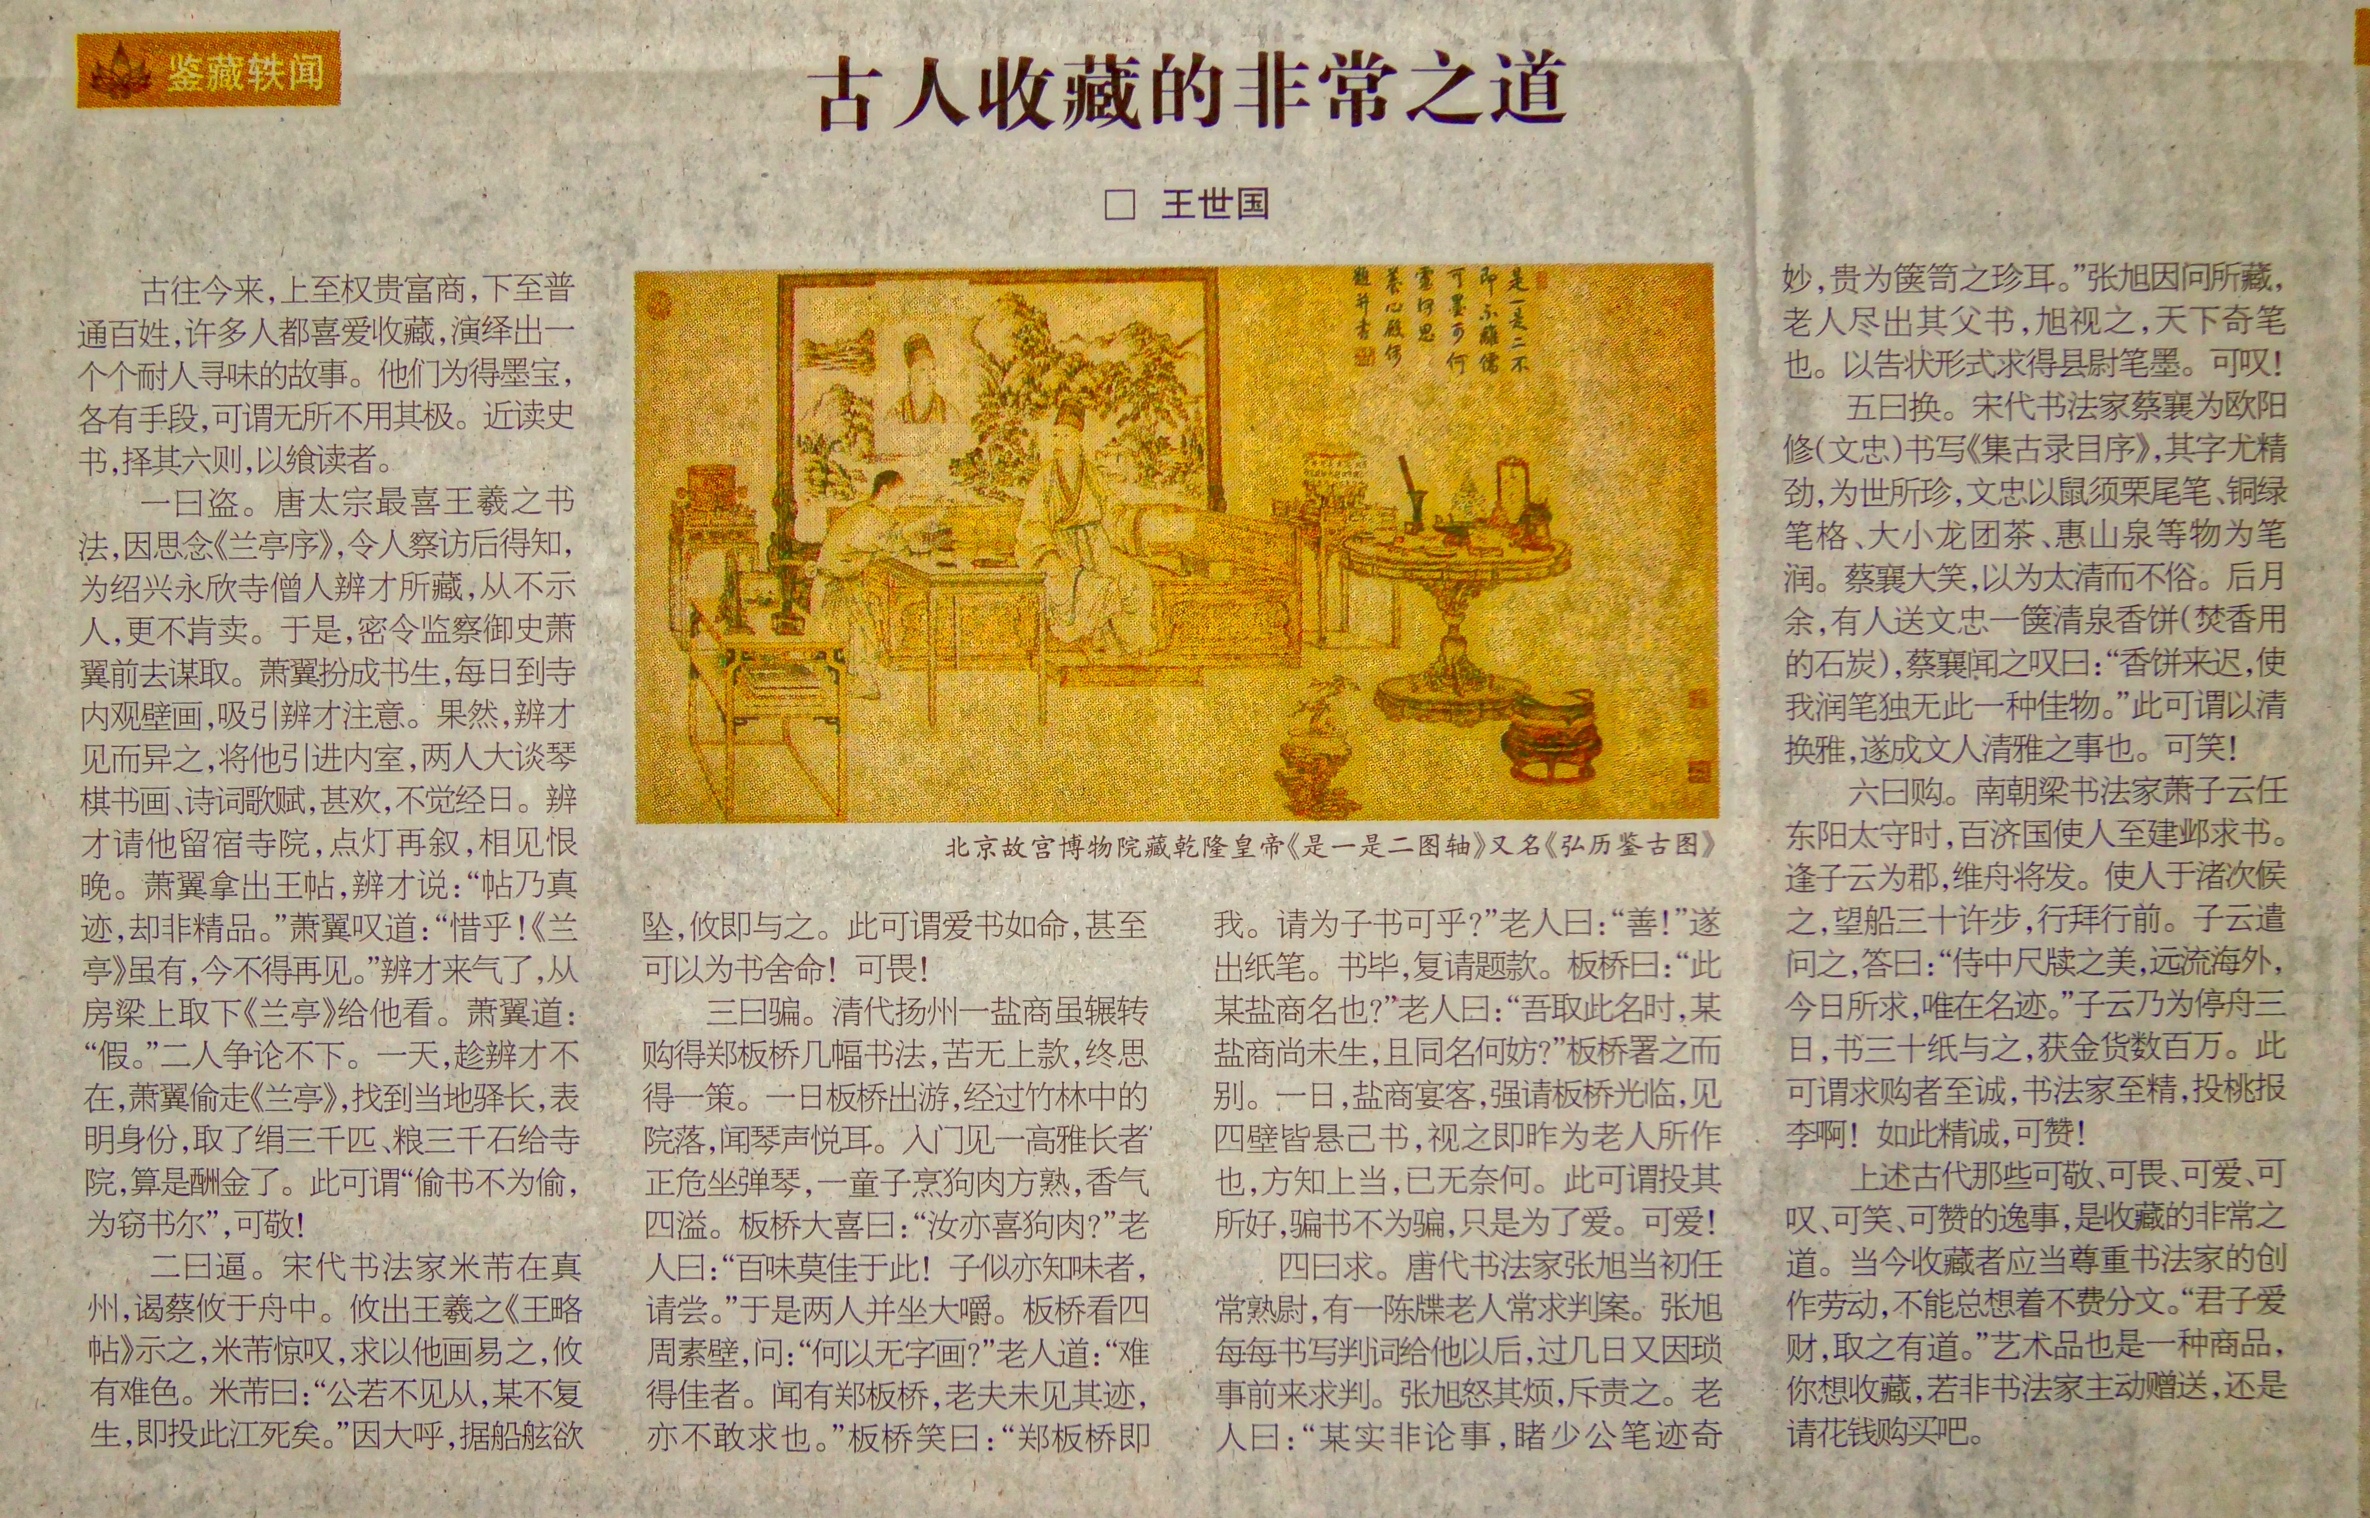 鉴藏轶闻
古人收藏的非常之道
□ 王世国
古往今来,上至权贵富商,下至普
通百姓,许多人都喜爱收藏,演绎出一
个个耐人寻味的故事。他们为得墨宝,
各有手段,可谓无所不用其极。近读史
书,择其六则,以飨读者。
一曰盗。唐太宗最喜王羲之书
法,因思念《兰亭序》,令人察访后得知,
为绍兴永欣寺僧人辨才所藏,从不示
人,更不肯卖。于是,密令监察御史萧
翼前去谋取。萧翼扮成书生,每日到寺
内观壁画,吸引辨才注意。果然,辨才
见而异之,将他引进内室,两人大谈琴
棋书画、诗词歌赋,甚欢,不觉经日。辨
才请他留宿寺院,点灯再叙,相见恨
晚。萧翼拿出王帖,辨才说:“帖乃真
迹,却非精品。”萧翼叹道:“惜乎!《兰
亭》虽有,今不得再见。”辨才来气了,从
房梁上取下《兰亭》给他看。萧翼道:
“假。”二人争论不下。一天,趁辨才不
在,萧翼偷走《兰亭》,找到当地驿长,表
明身份,取了绢三千匹、粮三千石给寺
院,算是酬金了。此可谓“偷书不为偷,
为窃书尔”,可敬!
二曰逼。宋代书法家米芾在真
州,谒蔡攸于舟中。攸出王羲之《王略
帖》示之,米芾惊叹,求以他画易之,攸
有难色。米芾曰:“公若不见从,某不复
生,即投此江死矣。”因大呼,据船舷欲
是一是二不
即不离儒
可墨可何
虑何思
养心殿偶
题并书
北京故宫博物院藏乾隆皇帝《是一是二图轴》又名《弘历鉴古图》
坠,攸即与之。此可谓爱书如命,甚至
可以为书舍命!可畏!
三曰骗。清代扬州一盐商虽辗转
购得郑板桥几幅书法,苦无上款,终思
得一策。一日板桥出游,经过竹林中的
院落,闻琴声悦耳。入门见一高雅长者
正危坐弹琴,一童子烹狗肉方熟,香气
四溢。板桥大喜曰:“汝亦喜狗肉?”老
人曰:“百味莫佳于此!子似亦知味者,
请尝。”于是两人并坐大嚼。板桥看四
周素壁,问:“何以无字画?”老人道:“难
得佳者。闻有郑板桥,老夫未见其迹,
亦不敢求也。”板桥笑曰:“郑板桥即
我。请为子书可乎?”老人曰:“善!”遂
出纸笔。书毕,复请题款。板桥曰:“此
某盐商名也?”老人曰:“吾取此名时,某
盐商尚未生,且同名何妨?”板桥署之而
别。一日,盐商宴客,强请板桥光临,见
四壁皆悬己书,视之即昨为老人所作
也,方知上当,已无奈何。此可谓投其
所好,骗书不为骗,只是为了爱。可爱!
四曰求。唐代书法家张旭当初任
常熟尉,有一陈牒老人常求判案。张旭
每每书写判词给他以后,过几日又因琐
事前来求判。张旭怒其烦,斥责之。老
人曰:“某实非论事,睹少公笔迹奇
妙,贵为箧笥之珍耳。”张旭因问所藏,
老人尽出其父书,旭视之,天下奇笔
也。以告状形式求得县尉笔墨。可叹!
五曰换。宋代书法家蔡襄为欧阳
修(文忠)书写《集古录目序》,其字尤精
劲,为世所珍,文忠以鼠须栗尾笔、铜绿
笔格、大小龙团茶、惠山泉等物为笔
润。蔡襄大笑,以为太清而不俗。后月
余,有人送文忠一箧清泉香饼(焚香用
的石炭),蔡襄闻之叹曰:“香饼来迟,使
我润笔独无此一种佳物。”此可谓以清
换雅,遂成文人清雅之事也。可笑!
六曰购。南朝梁书法家萧子云任
东阳太守时,百济国使人至建邺求书。
逢子云为郡,维舟将发。使人于渚次候
之,望船三十许步,行拜行前。子云遣
问之,答曰:“侍中尺牍之美,远流海外,
今日所求,唯在名迹。”子云乃为停舟三
日,书三十纸与之,获金货数百万。此
可谓求购者至诚,书法家至精,投桃报
李啊!如此精诚,可赞!
上述古代那些可敬、可畏、可爱、可
叹、可笑、可赞的逸事,是收藏的非常之
道。当今收藏者应当尊重书法家的创
作劳动,不能总想着不费分文。“君子爱
财,取之有道。”艺术品也是一种商品,
你想收藏,若非书法家主动赠送,还是
请花钱购买吧。